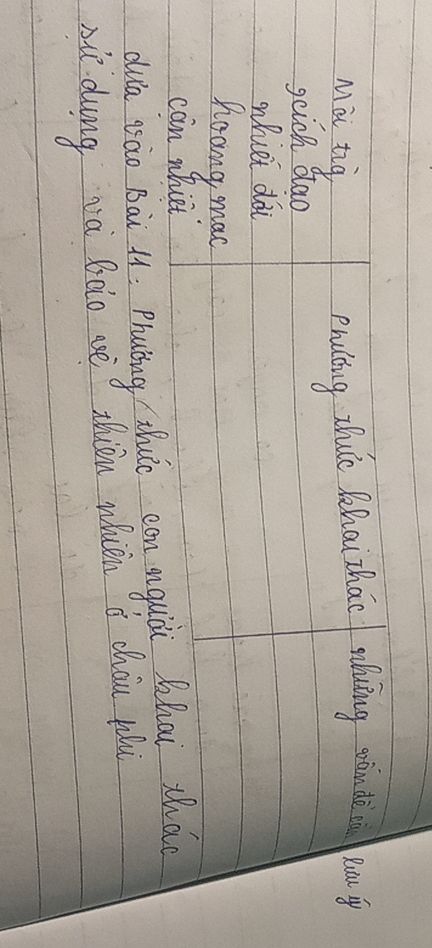 Môi trg Phương thức khai thác những vấn đề cần lưu ý
xích đạo
nhiệt đới
hoang mạc
cận nhiệt
dựa vào Bài 11: Phương thức con người khai thác
sử dụng và bảo vệ thiên nhiên ở châu phi